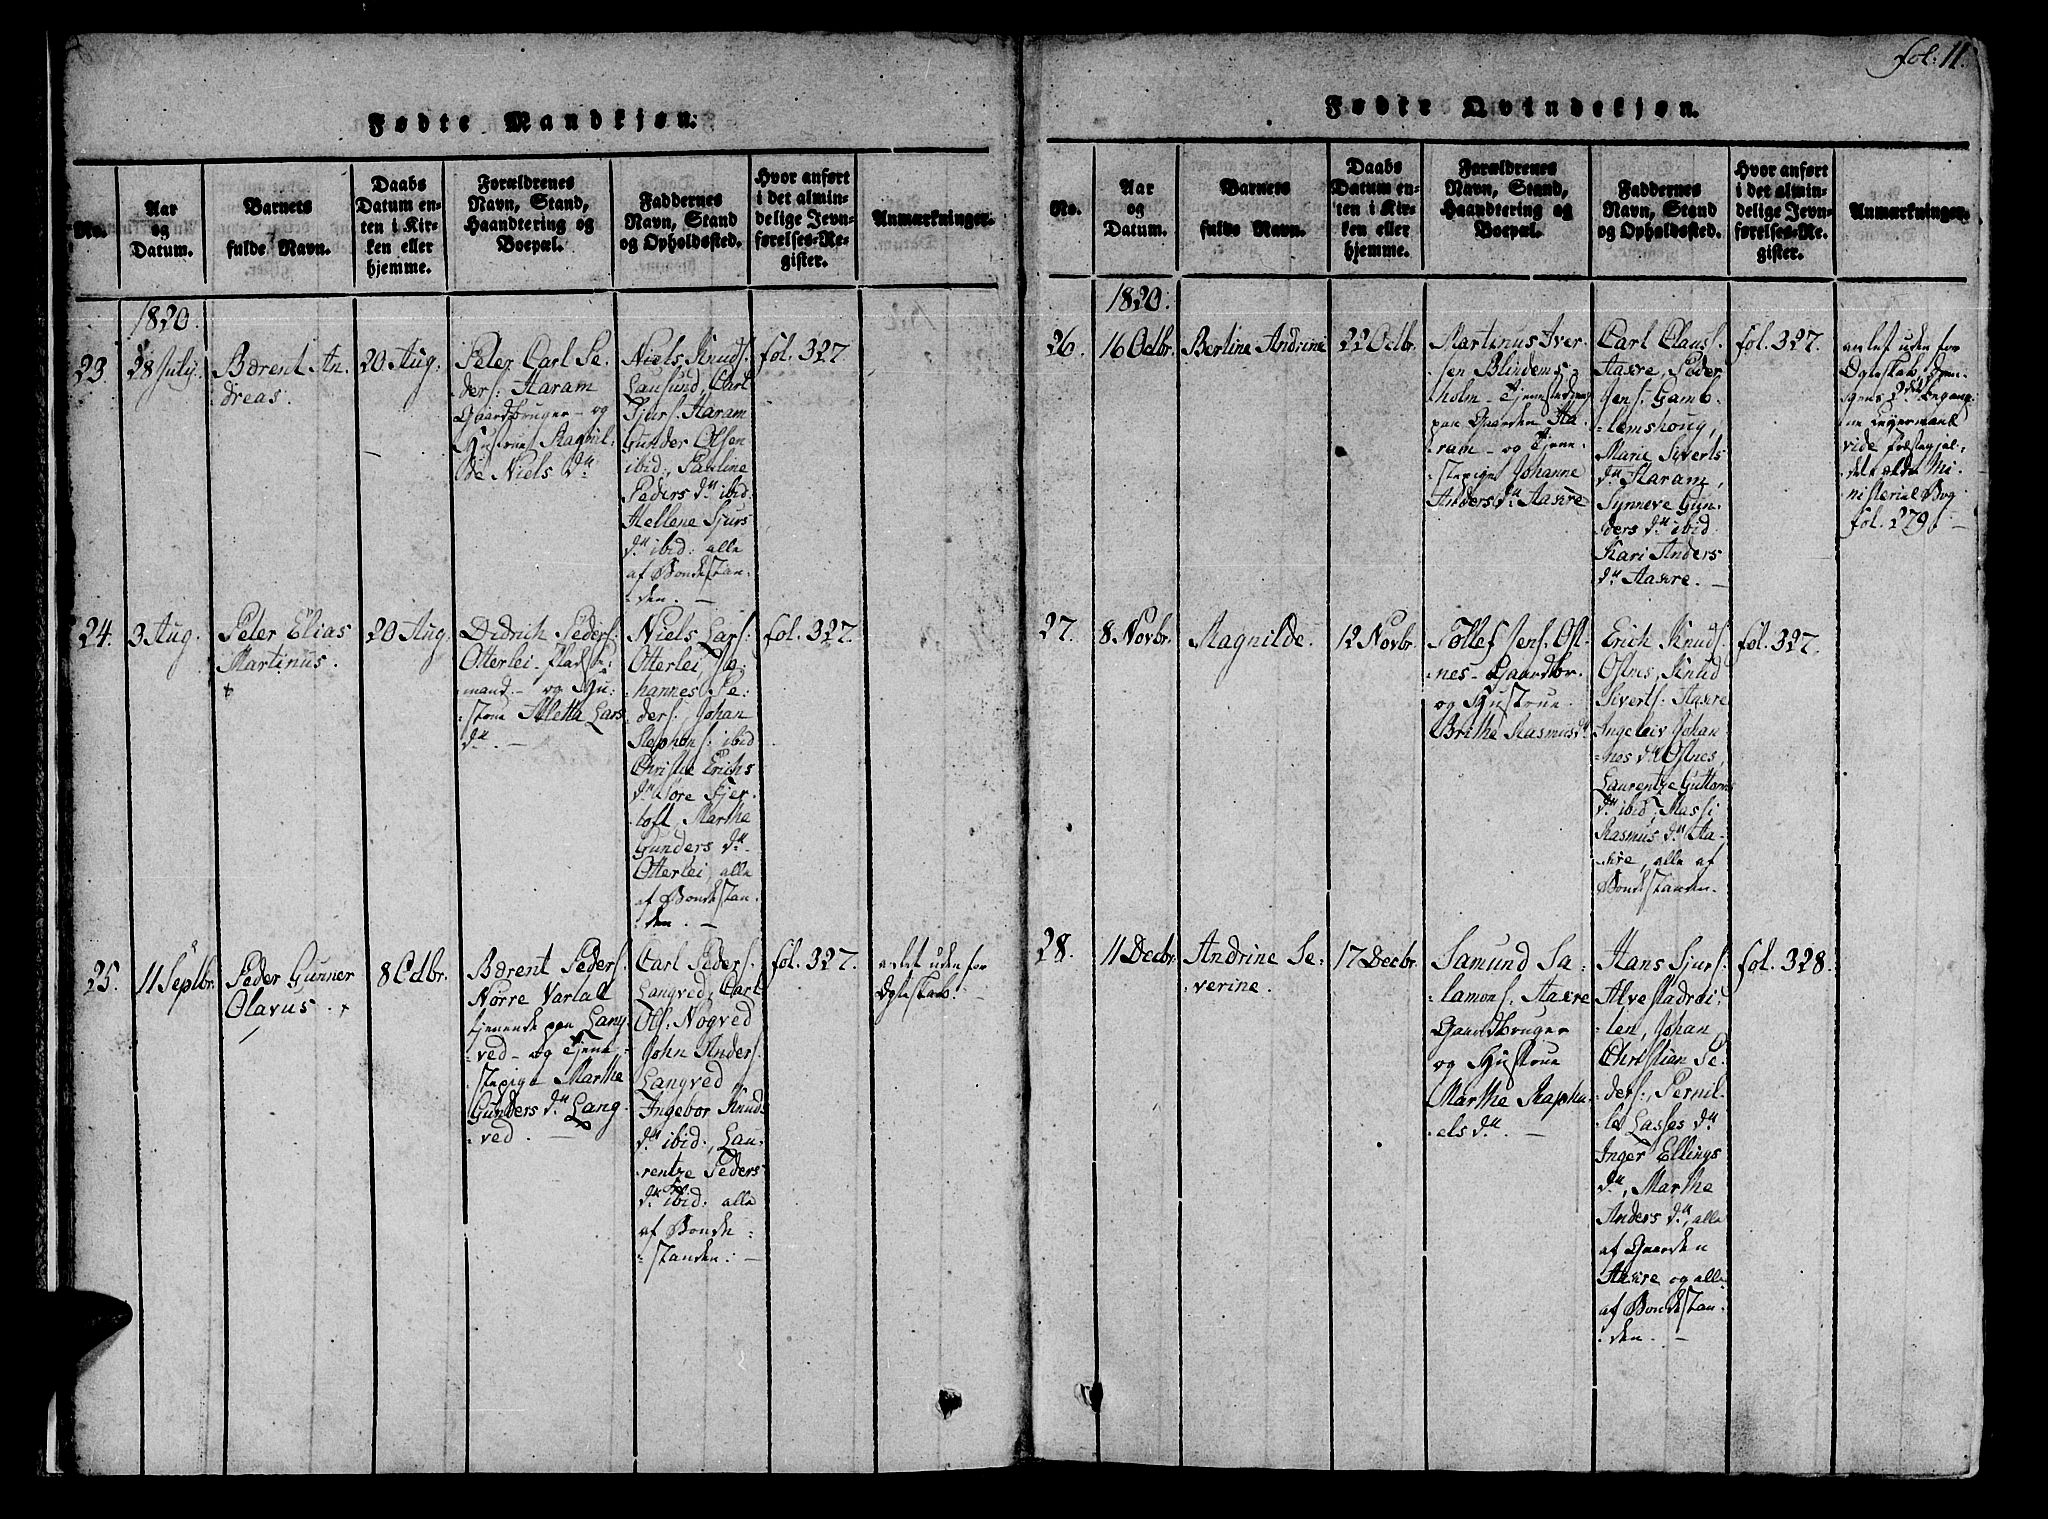 Fødte Mandkjøn.
No.
Aar
og
Datum.
Barnets
fulde Navn.
Daabs
Datum en-
ten i Kir-
ken eller
hjemme.
Forældrenes
Navn, Stand,
Haandtering og
Boepæl.
Faddernes
Navn, Stand
og Opholdssted.
Hvor anført
i det almin-
delige Jevn-
førelses-Re-
gister.
Anmærkninger.
1820.
23.
28 July.
Bærent An-
dreas.
20 Aug.
Peter Carl Pe-
ders: Haram
Gaardbruger - og
Hustrue Magnil-
de Niels Dr
Niels Knuds.
Lausund, Carl
Sjurs. Haram
Gunder Olsen
ibid:, Pauline
Peders dr ibid
Hellene Sjurs
dr ibid: alle
af Bondestan-
den. -
fol. 327.
24.
3 Aug.
Peter Elias
Martinus.
20 Aug.
Didrich Peders:
Otterlei - pladse-
mand - og Hu-
strue Aletta Lars
dr. -
Niels Lars:
Otterlei, Jo-
hannes Pe-
ders., Johan
Stephens: ibid
Christie Erichs
dr Fjer-
toft, Marthe
Gunders dr
Otterlei, alle
af Bondestan-
den. -
fol. 327.
25.
11 Septbr.
Peder Gunner
Olavus.
8 Octbr.
Bærent Peders.
Nørre Vartdal
tjenende paa Lang-
ved - og Tjene-
stepige Marthe
Gunders dr Lang-
ved. -
Carl Peders.
Langved, Carl
Ols: Nogved
John Anders.
Langved
Ingebor Knuds
dr ibid:, Lau-
rentze Peders
dr ibid: alle
af Bonde-
standen. -
fol. 327.
avlet uden for
Ægteskab. -
fol. 11.
Fødte Qvindekjøn.
No.
Aar
og
Datum.
Barnets
fulde Navn.
Daabs
Datum en-
ten i Kir-
ken eller
hjemme.
Forældrenes
Navn, Stand,
Haandtering og
Boepæl.
Faddernes
Navn, Stand
og Opholdssted.
Hvor anført
i det almin-
delige Jevn-
førelses-Re-
gister.
Anmærkninger.
1820.
26.
16 Octbr.
Bertine Andrine
22 Octbr.
Martinus Iver-
sen Blindems-
holm - Tjenestedreng
paa Gaarden Ha-
ram - og Tjene-
stepige Johanne
Anders dr Aasere
Carl Claus.
Aasere, Peder
Jens. Gamb-
lemshoug,
Marie Siverts
dr Haram,
Synneve Gun-
ders dr ibid
Kari Anders
dr Aasere. -
fol. 327.
avlet uden for
Ægteskab,
vide
det ældre Mi-
nisterial Bog
fol. 279. -
27.
8 Novbr.
Magnilde.
12 Novbr.
Tollef Jens. Ost-
nes - Gaardbr.
og Hustrue
Brithe Rasmus dr
Erich Knuds.
Ostnes, Knud
Siverts: Aasere
Ingeleiv Johan-
nes dr Ostnes,
Laurentze Guttorms
dr ibid, Massi
Rasmus dr Aa-
sere, alle af
Bondestanden.
fol. 327.
28.
11 Decbr.
Andrine Se-
verine.
17 Decbr.
Samund Sa-
lamons. Aasere
Gaardbruger
og Hustrue
Marthe Rapha-
els dr. -
Hans Sjurs.
Alvestadrei-
ten, Johan
Christian Pe-
ders:, Pernil-
le Lasses dr
Inger Ellings
dr, Marthe
Anders dr, alle
af Gaarden
Aasere og alle
af Bondestan-
den. -
fol. 328.